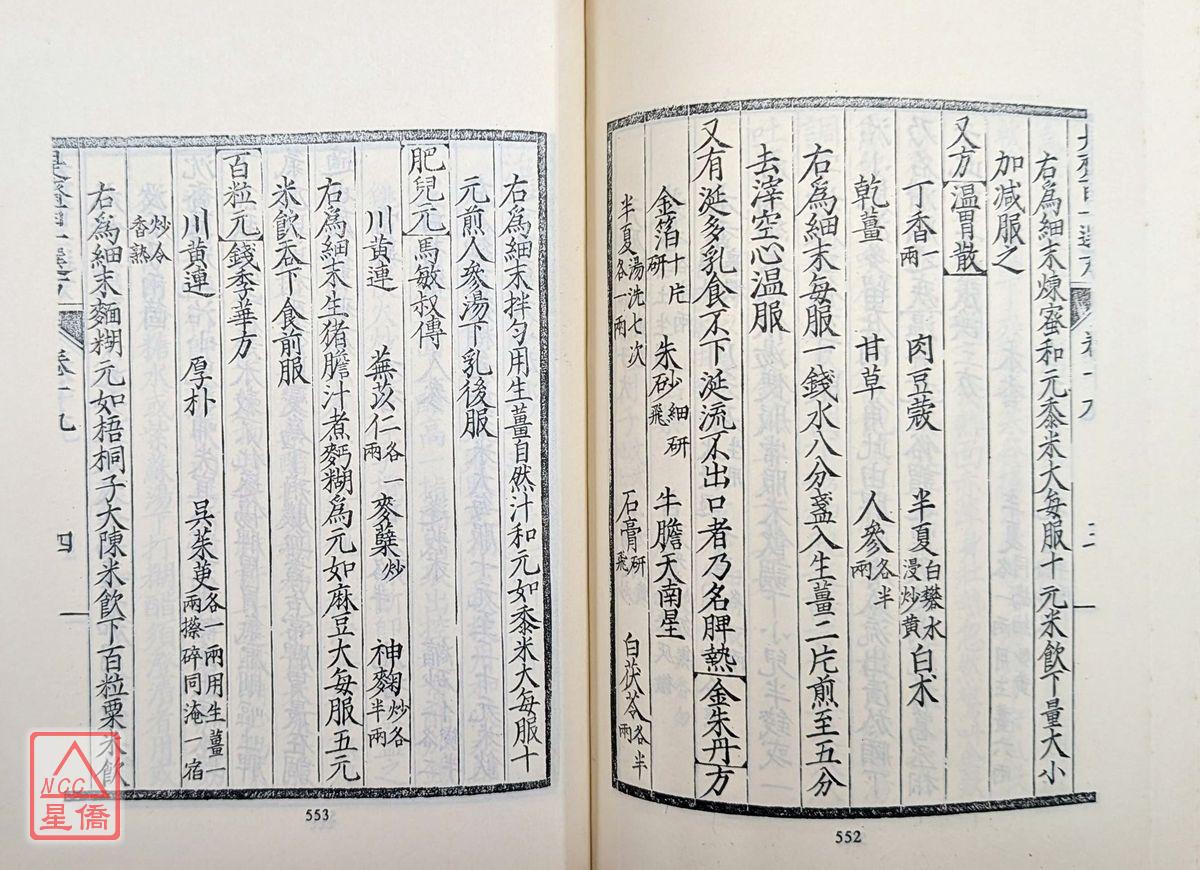 右為細末煉蜜和元黍米大每服十元米飲下量大小
加減服之
又方溫胃散
丁香一兩 肉豆蔻 半夏白礬水浸炒黃 白朮
乾薑 甘草 人參各半兩
右為細末每服一錢水八分盞入生薑二片煎至五分
去滓空心溫服
又有涎多乳食不下涎流不出口者乃名脾熱金朱丹方
金箔十片研 朱砂細研飛 牛膽天南星
半夏湯洗七次各一兩 石膏研飛 白茯苓各半兩
552
右為細末拌勻用生薑自然汁和元如黍米大每服十
元煎人參湯下乳後服
肥兒元馬敏叔傳
川黃連 蕪荑仁各一兩 麥蘗炒 神麴炒各半兩
右為細末生猪膽汁煮麪糊爲元如麻豆大每服五元
米飲吞下食前服
百粒元錢季華方
川黃連 厚朴 吳茱萸各一兩用生薑一兩擦碎同淹一宿
炒令香熟
右爲細末麵糊元如梧桐子大陳米飲下百粒粟米飲
卷十九 四
553
NCC
星僑